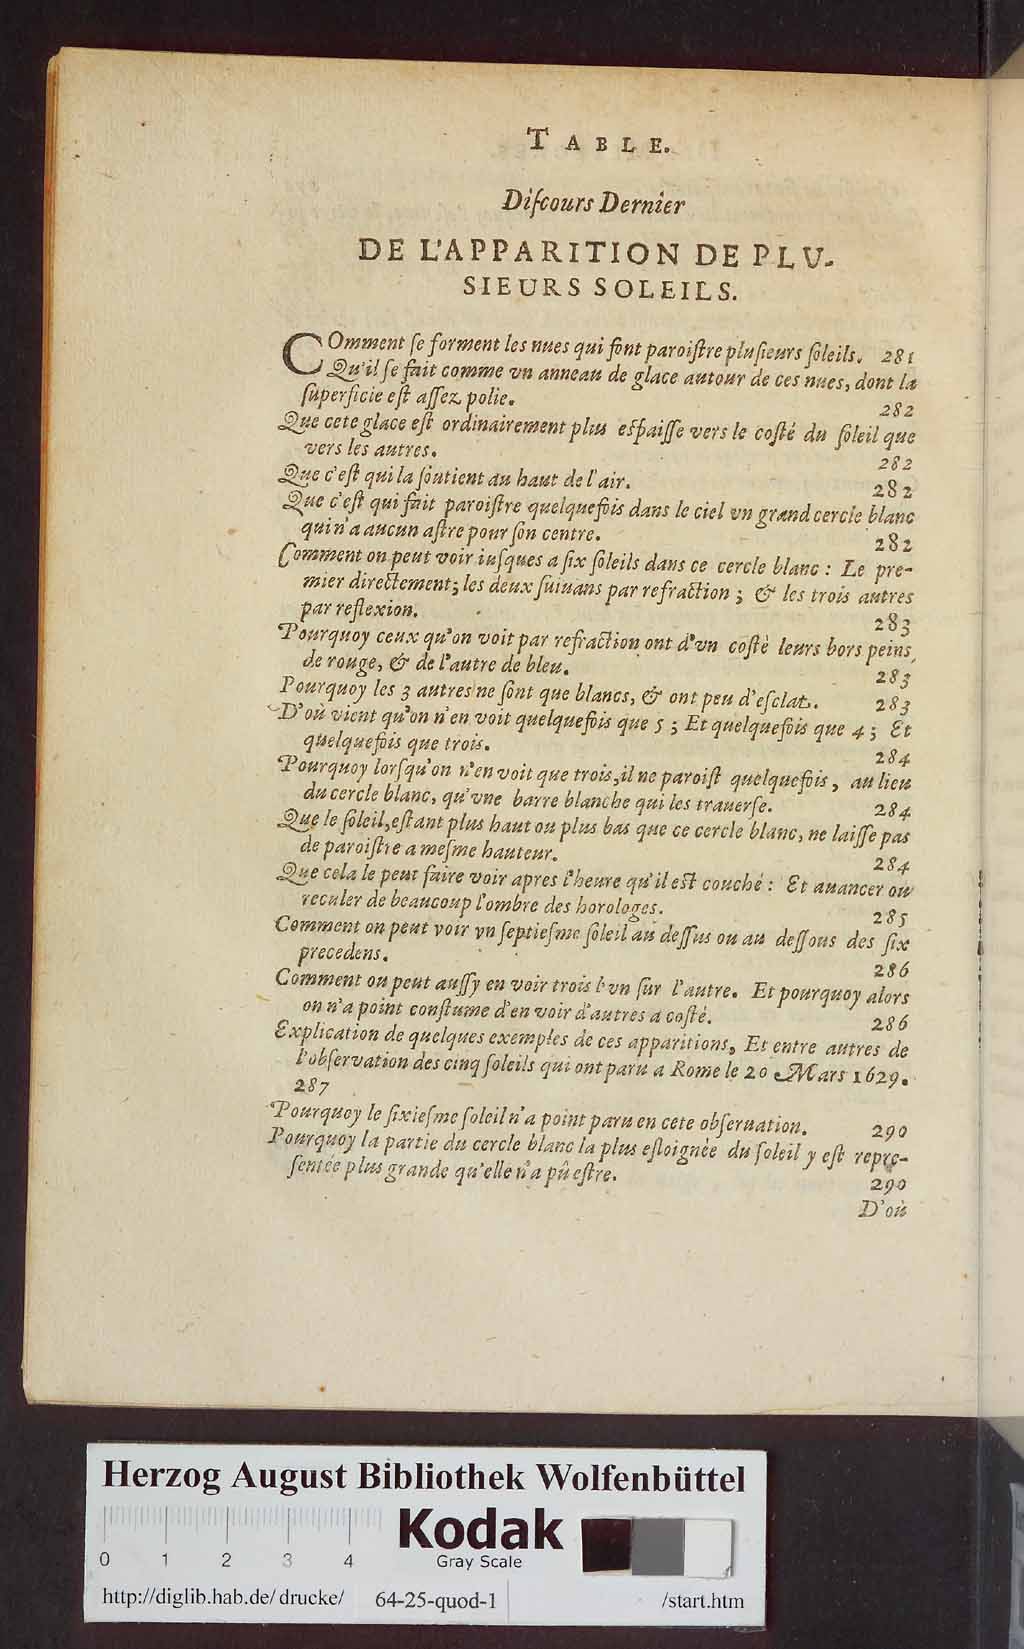 TABLE.
Diſcours Dernier
DE L'APPARITION DE PLU-
SIEURS SOLEILS.
COmment ſe forment les nues qui font paroiſtre pluſieurs ſoleils. 281
Qu'il ſe fait comme vn anneau de glace autour de ces nues, dont la
ſuperficie eſt aſſez polie. 282
Que cete glace eſt ordinairement plus eſpaiſſe vers le coſté du ſoleil que
vers les autres. 282
Que c'eſt qui la ſoutient au haut de l'air. 282
Que c'eſt qui fait paroiſtre quelquefois dans le ciel vn grand cercle blanc
qui n'a aucun aſtre pour ſon centre. 282
Comment on peut voir iuſques a ſix ſoleils dans ce cercle blanc : Le pre-
mier directement; les deux ſuiuans par refraction ; & les trois autres
par reflexion. 283
Pourquoy ceux qu'on voit par refraction ont d'vn coſté leurs bors peins
de rouge, & de l'autre de bleu. 283
Pourquoy les 3 autres ne ſont que blancs, & ont peu d'eſclat. 283
D'où vient qu'on n'en voit quelquefois que 5 ; Et quelquefois que 4 ; Et
quelquefois que trois. 284
Pourquoy lorſqu'on n'en voit que trois, il ne paroiſt quelquefois, au lieu
du cercle blanc, qu'vne barre blanche qui les trauerſe. 284
Que le ſoleil, eſtant plus haut ou plus bas que ce cercle blanc, ne laiſſe pas
de paroiſtre a meſme hauteur. 284
Que cela le peut faire voir apres l'heure qu'il eſt couché : Et auancer ou
reculer de beaucoup l'ombre des horologes. 285
Comment on peut voir vn ſeptieſme ſoleil au deſſus ou au deſſous des ſix
precedens. 286
Comment on peut auſſy en voir trois l'vn ſur l'autre. Et pourquoy alors
on n'a point conſtume d'en voir d'autres a coſté. 286
Explication de quelques exemples de ces apparitions, Et entre autres de
l'obſervation des cinq ſoleils qui ont paru a Rome le 20 Mars 1629.
287
Pourquoy le ſixieſme ſoleil n'a point paru en cete obſeruation. 290
Pourquoy la partie du cercle blanc la plus eſloignée du ſoleil y eſt repre-
ſentée plus grande qu'elle n'a pû eſtre. 290
D'où
Herzog August Bibliothek Wolfenbüttel
Kodak
Gray Scale
0 1 2 3 4
http://diglib.hab.de/drucke/ 64-25-quod-1 /start.htm